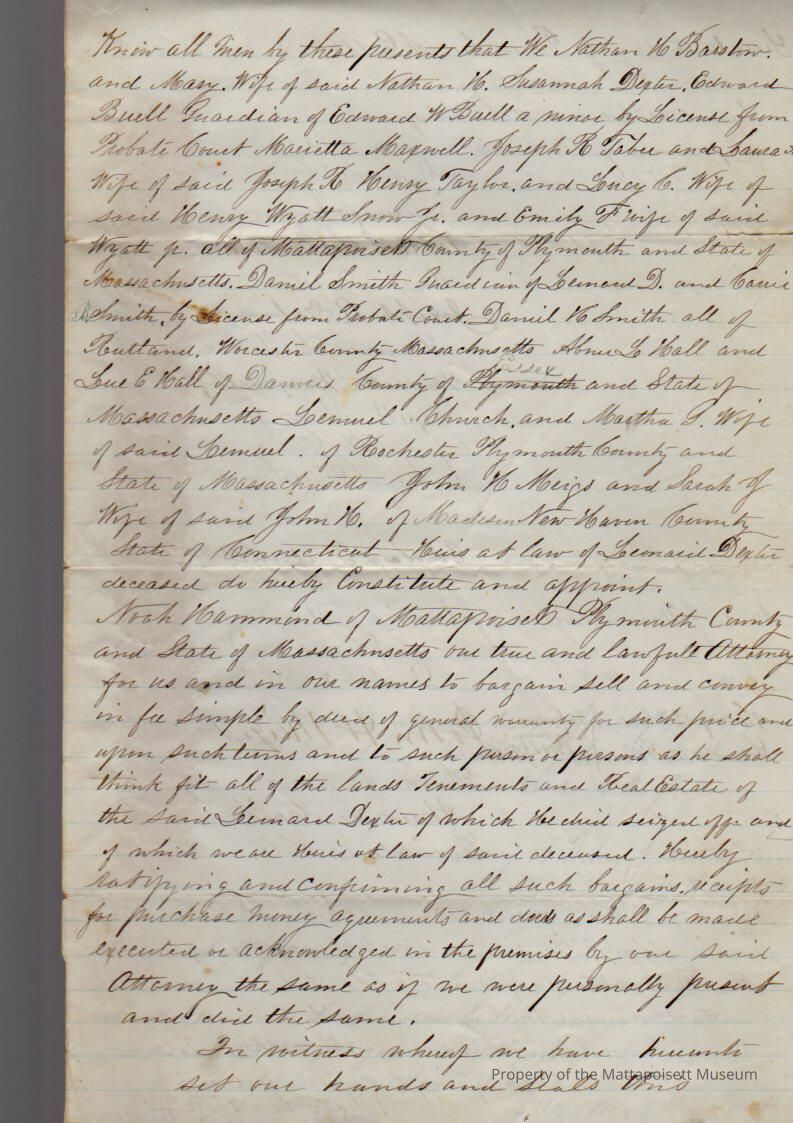 Know all Men by these presents that We Nathan H Barstow.
and Mary. Wife of said Nathan H. Susannah Dexter. Edward
Buell Guardian of Edward W Buell a minor by License from
Probate Court Marietta Maxwell. Joseph R Taber and Laura
Wife of said Joseph R Henry Taylor. and Lucy C. Wife of
said Henry Wyatt Snow Jr. and Emily F wife of said
Wyatt jr. all of Mattapoisett County of Plymouth and State of
Massachusetts. Daniel Smith Guardian of Leonard D. and Carrie
B. Smith, by License from Probate Court. Daniel H Smith all of
Rutland. Worcester County Massachusetts Abner L Hall and
Lue E Hall of Danvers County of Plymouth and State of
Essex
Massachusetts Lemuel Church, and Martha S. Wife
of said Lemuel. of Rochester Plymouth County and
State of Massachusetts John H Meigs and Sarah J
Wife of said John H. of Madison New Haven County
State of Connecticut Heirs at law of Leonard Dexter
deceased do hereby Constitute and appoint.
Noah Hammond of Mattapoisett Plymouth County
and State of Massachusetts our true and lawfull Attorney
for us and in our names to bargain sell and convey
in fee simple by deed of general warranty for such price and
upon such terms and to such person or persons as he shall
think fit all of the lands Tenements and Real Estate of
the said Leonard Dexter of which He died seized off and
of which we are Heirs at law of said deceased. Hereby
ratifying and confirming all such bargains, receipts
for purchase money agreements and deeds as shall be made
executed or acknowledged in the premises by our said
Attorney the same as if we were personally present
and did the same.
In witness whereof we have hereunto
set our hands and seals this
Property of the Mattapoisett Museum